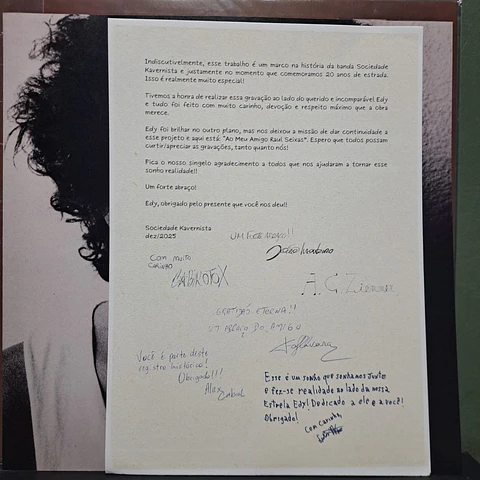 Indiscutivelmente, esse trabalho é um marco na história da banda Sociedade
Kavernista e justamente no momento que comemoramos 20 anos de estrada.
Isso é realmente muito especial!
Tivemos a honra de realizar essa gravação ao lado do querido e incomparável Edy
e tudo foi feito com muito carinho, devoção e respeito máximo que a obra
merece.
Edy foi brilhar no outro plano, mas nos deixou a missão de dar continuidade a
esse projeto e aqui está: "Ao Meu Amigo Raul Seixas". Espero que todos possam
curtir/apreciar as gravações, tanto quanto nós!
Fica o nosso singelo agradecimento a todos que nos ajudaram a tornar esse
sonho realidade!!
Um forte abraço!
Edy, obrigado pelo presente que você nos deu!!
Sociedade Kavernista
dez/2025
João
COM MUITO
CARINHO
A. C. Ziemmer
GRATIDÃO ETERNA!!
UM ABRAÇO DO AMIGO
Você é parte deste
registro histórico!
Obrigado!!!
Alex
Cabral
Esse é um sonho que sonhamos junto
e fez-se realidade ao lado da nossa
Estrela Edy! Dedicado a ele e a você!
Obrigado!
Com Carinho,